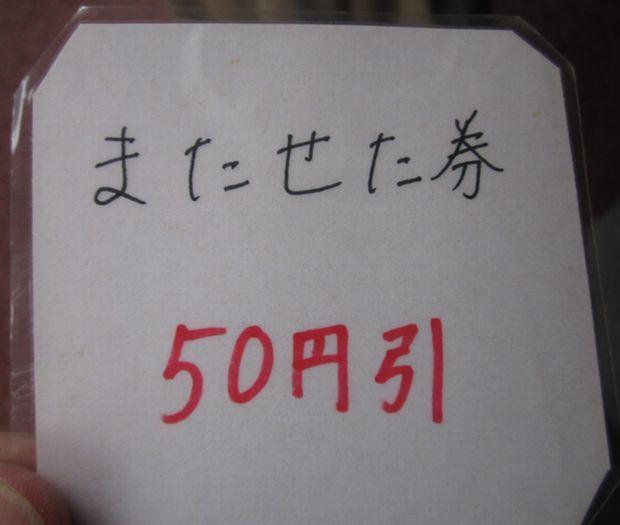 またせた券
50円引